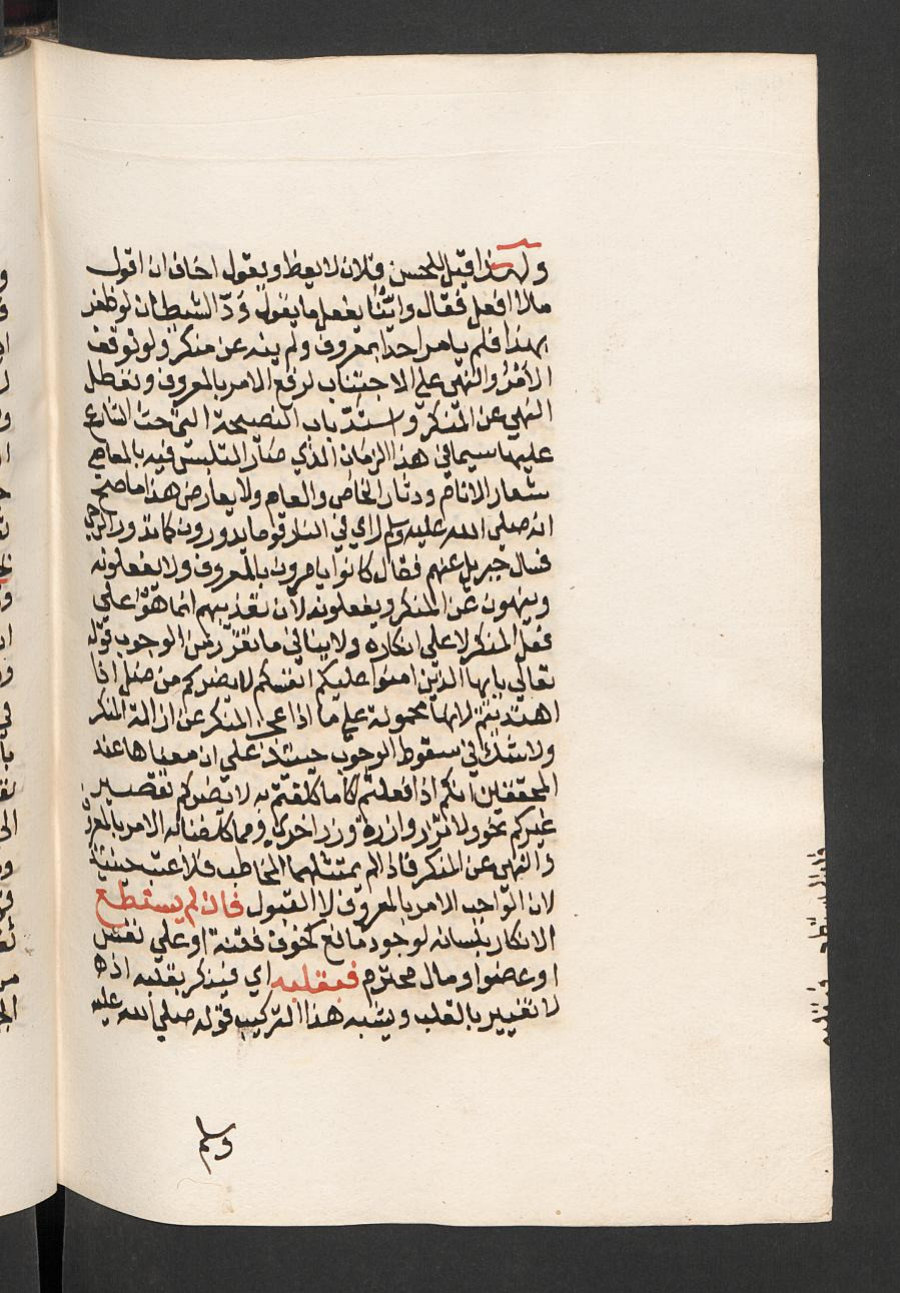 ولهذا قيل للحسن فلان لا يعظ ويقول اخاف ان اقول
ملاا افعل فقال وايّنا يفعل ما يقول ودّ الشيطان لو ظفر
بهذا فلم يامر احد بمعروف ولم ينه عن منكر ولو توقف
الامر والنهي علي الاجتناب لرفع الامر بالمعروف وتعطل
النهي عن المنكر واستدّ باب النصيحة التي حث الشارع
عليها سيما في هذا الزمان الذي صار التلبس فيه بالمعاصي
شعار الانام ودثار الخاص والعام ولا يعارض هذا ما صح
انه صلي الله عليه وسلم راي في النار قوما يدورون كما تدور الرحي
فسال جبريل عنهم فقال كانوا يامرون بالمعروف ولا يفعلونه
وينهون عن المنكر ويفعلونه لان تعذيبهم انما هو علي
فعل المنكر لا علي انكاره ولا ينافي ما تقرر من الوجوب قوله
تعالي يايها الذين امنوا عليكم انفسكم لا يضركم من ضل اذا
اهتديتم لانها محمولة علي ما اذا عجز المنكر عن ازالة المنكر
ولا شك في سقوط الوجوب حينئذ علي ان معناها عند
المحققين انكم اذا فعلتم كاما كلفتم به لا يضركم تقصير
غيركم نحو ولا تزر وازرة وزر اخري ومما كلفنا به الامر بالمعروف
والنهي عن المنكر فاذا لم يمتثلهما المخاطب فلا عتب حينئذ
لان الواجب الامر بالمعروف لا القبول فان لم يستطع
الانكار بلسانه لوجود مانع كخوف فتنة او علي نفس
او عضو او مال محترم فبقلبه اي فينكر بقلبه اذ
لا تغيير بالقلب ويشبه هذا التركيب قوله صلي الله عليه
وسلم
فان لم يستطع فبقلبه